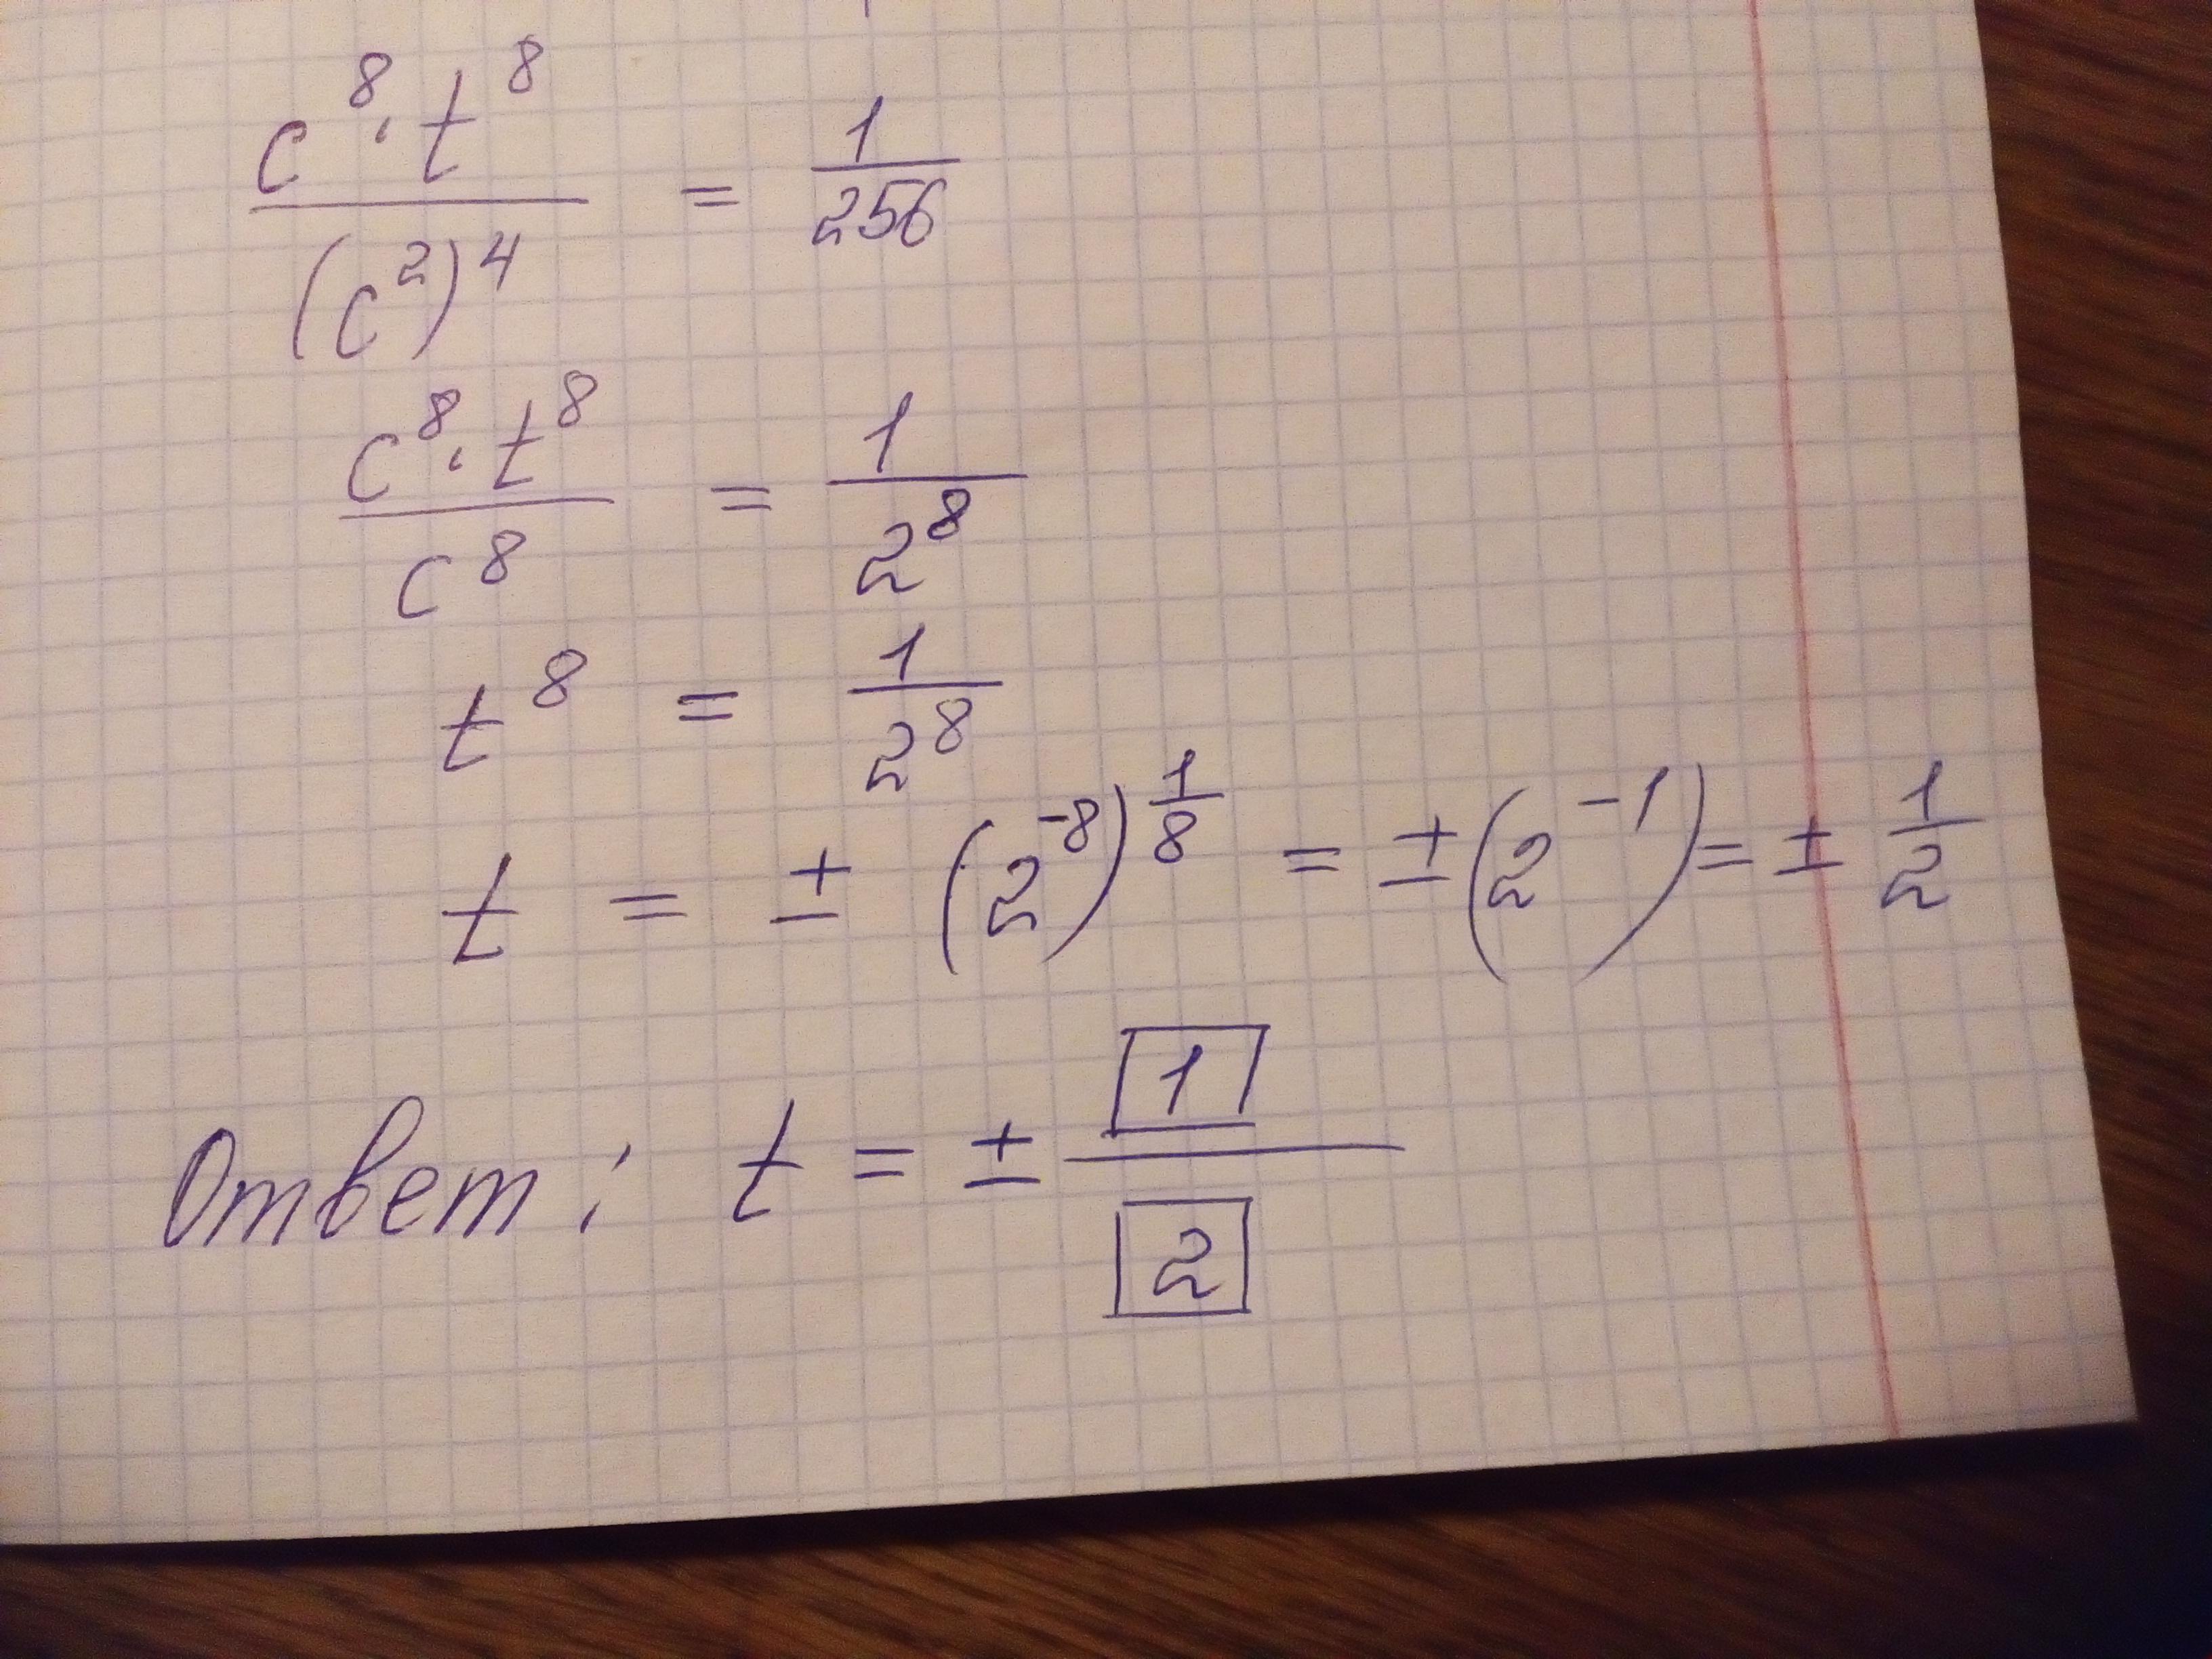 c⁸·t⁸/(c²)⁴ = 1/256
c⁸·t⁸/c⁸ = 1/2⁸
t⁸ = 1/2⁸
t = ± (2⁻⁸)^(1/8) = ±(2⁻¹) = ± 1/2
Ответ: t = ± 1/2